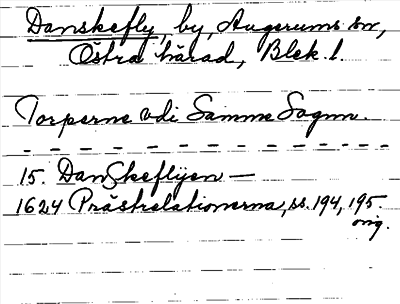 Danskefly, by, Augerums sn,
Östra härad, Blek. l.
Torperne vdi Samme Sognn.
15. Danskeflÿen —
1624 Prästrelationerna, ss. 194, 195.
orig.